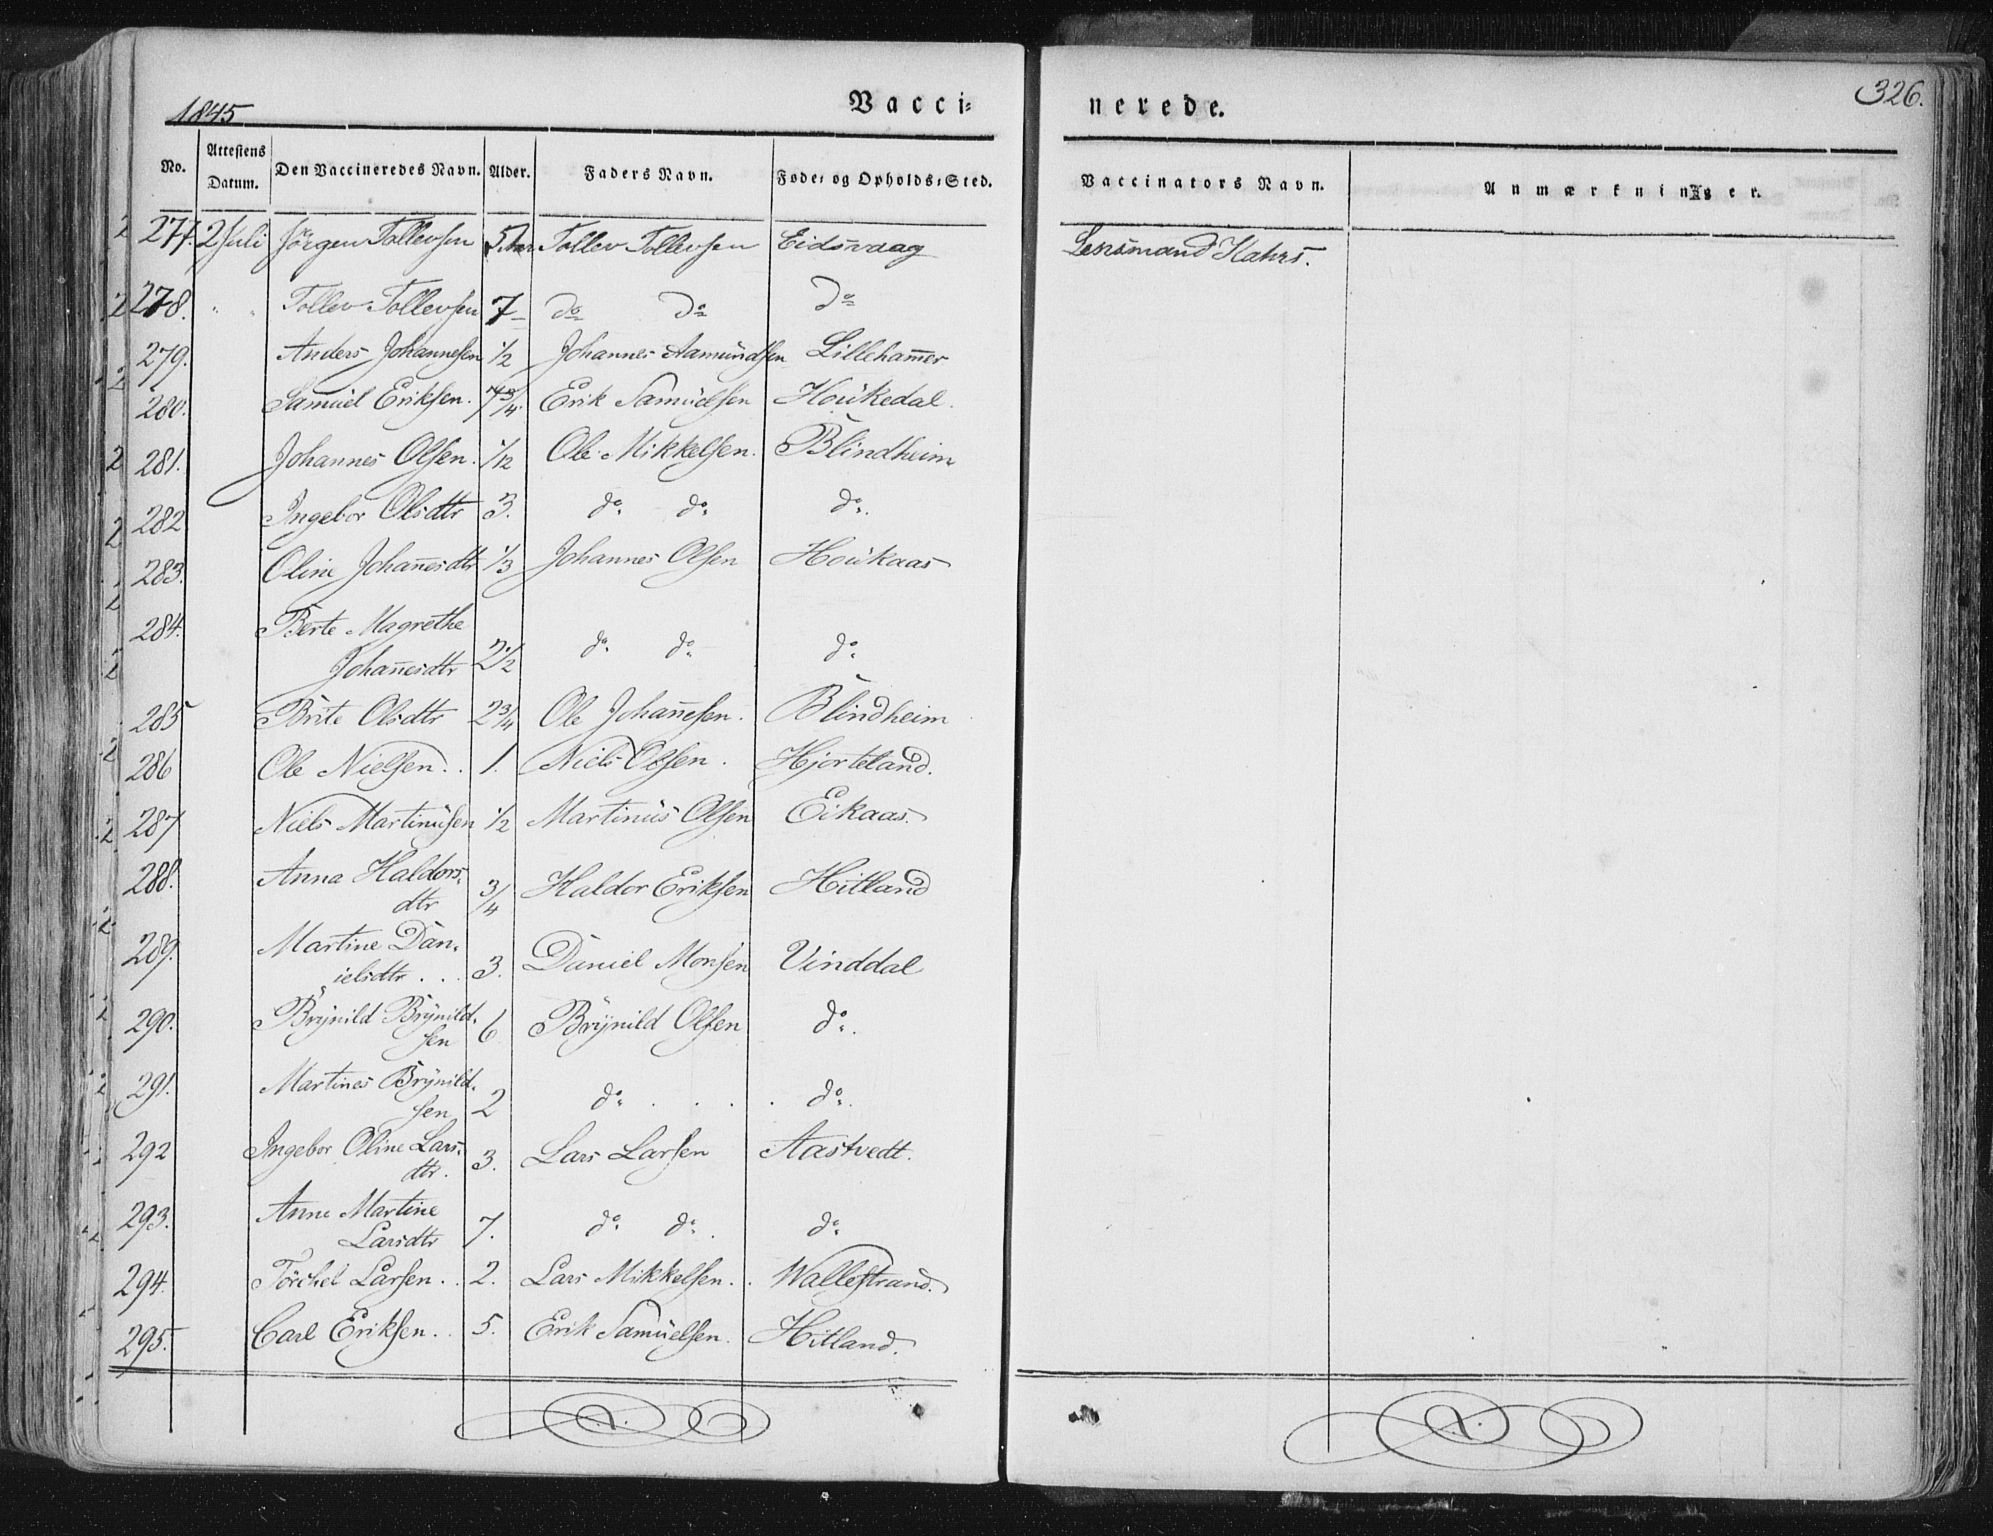 1845
Vacci=
nerede.
326.
No.
Attestens Datum.
Den Vaccineredes Navn.
Alder.
Faders Navn.
Føde= og Opholds=Sted.
Vaccinators Navn.
Anmærkninger.
277. 2 Juli Jørgen Tollevsen Tollev Tollevsen Eidsvaag Lensmand Kahrs.
278. " " Tollev Tollevsen 7 do do do
279. Anders Johannesen 1/2 Johannes Aamundsen Lillehammer
280. Samuel Eriksen. 7 3/4 Erik Samuelsen Houkedal.
281. Johannes Olsen. 1/12 Ole Mikkelsen. Blindheim
282 Ingebor Olsdtr 3. do. do. do.
283. Oline Johannesdtr 1/3 Johannes Olsen Houkaas
284. Berte Magrethe
Johannesdtr 2 1/2 do. do. do.
285 Brite Olsdtr 2 3/4 Ole Johannesen. Blindheim
286 Ole Nielsen. . 1. Niels Olsen. Hjorteland.
287 Niels Martinusen 1/2 Martinus Olsen Eikaas.
288. Anna Haldors=
dtr 3/4 Haldor Eriksen Hitland
289. Martine Dan=
ielsdtr . . 3. Daniel Monsen Vinddal
290. Brynild Brynild=
sen 6 Brynild Olsen do.
291. Martines Brynild=
sen 2 do. . . . . do.
292 Ingebor Oline Lars=
dtr. 3. Lars Larsen Aastvedt.
293. Anne Martine
Larsdtr 7. do. do. do.
294. Torchel Larsen. . 2. Lars Mikkelsen. . Wallestrand.
295. Carl Eriksen. . 5. Erik Samuelsen. Hitland.